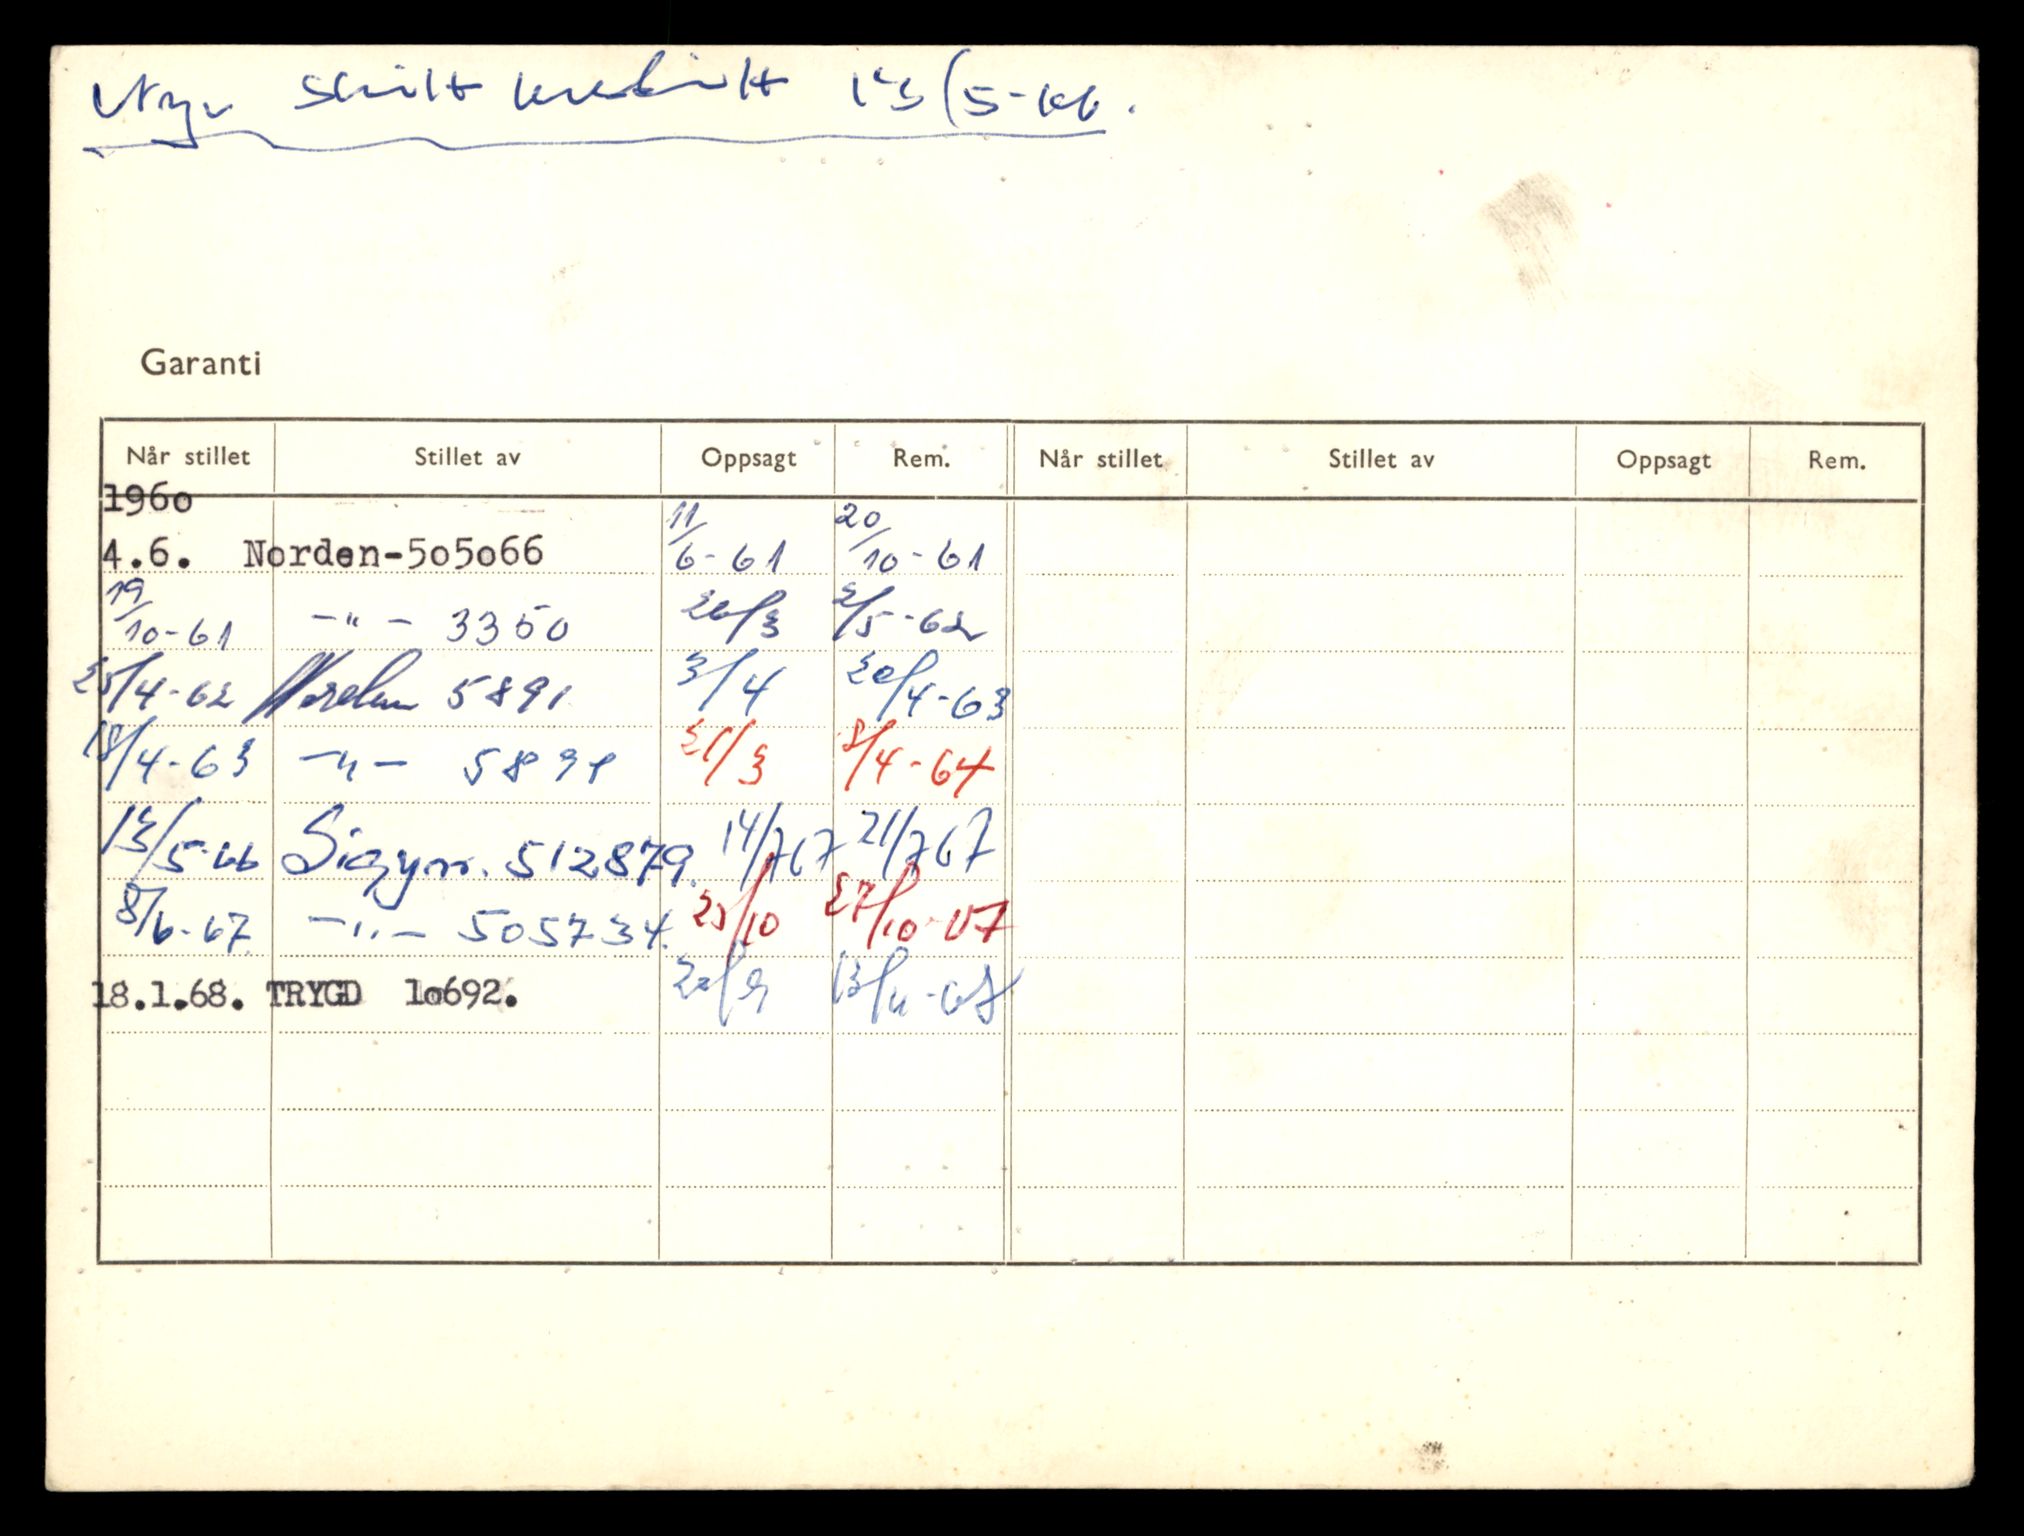 Nye skilt 13/5-66.
Garanti
Når stillet Stillet av Oppsagt Rem. Når stillet Stillet av Oppsagt Rem.
1960
4.6. Norden-505066 11/6-61 20/10-61
19/10-61 -"- 3350 26/3 2/5-62
25/4-62 Norden 5891 3/4 20/4-63
18/4-63 -"- 5891 21/3 8/4-64
13/5-66 Sigyn. 512879. 14/7 67 21/7 67
8/6-67. -"- 505734. 25/10 27/10-67
18.1.68. TRYGD 10692. 20/9